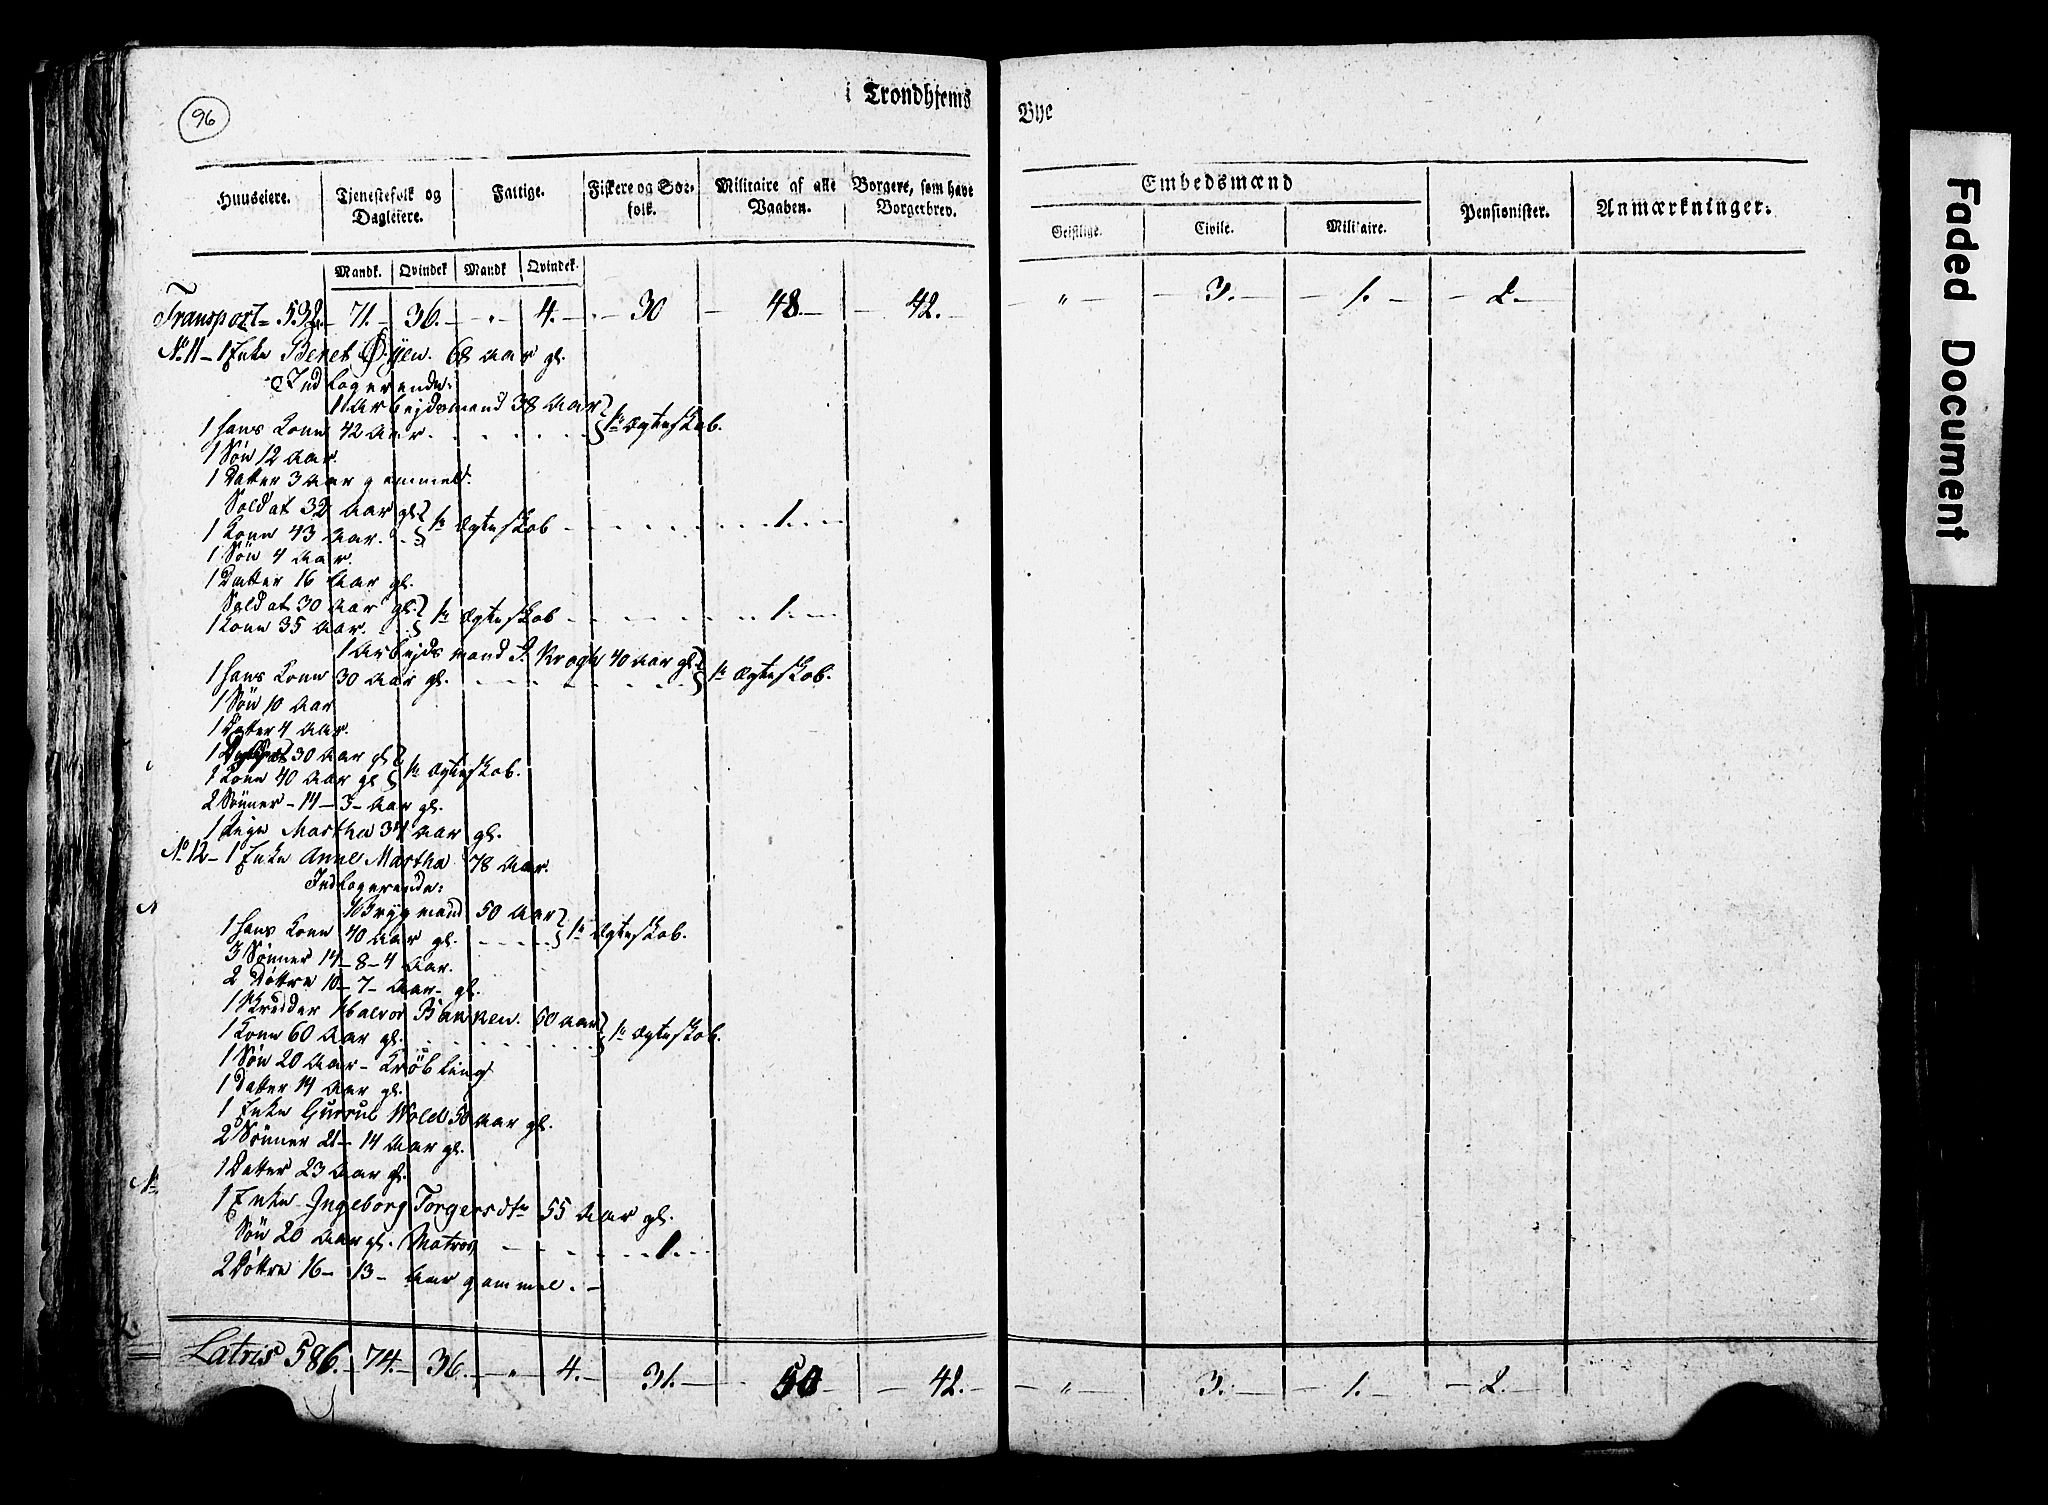 96
i Trondhjems Bye
Huuseiere. Tjenestefolk og Dagleiere. Fattige. Fiskere og Søe-folk. Militaire af alle Vaaben. Borgere, som have Borgerbrev. Embedsmænd Pensionister. Anmærkninger.
Mandk. Qvindek Mandk Qvindek. Geistlige. Civile. Militaire.
Transport - 532 - 71. - 36. - " - 4. - 30 - 48. - 42. - " - 3. - 1. - 2. -
No. 11 - 1 Enke Beret Øyen. 68 Aar gl.
Indlogerende:
1 Arbejdsmand 38 Aar
1 hans Kone 42 Aar. } 1te Ægteskab.
1 Søn 12 Aar.
1 Datter 3 Aar gammel.
Soldat 32 Aar gl. } 1te Ægteskab - 1. -
1 Kone 43 Aar.
1 Søn 4 Aar.
1 Datter 16 Aar gl.
Soldat 30 Aar gl. } 1te Ægteskab - 1. -
1 Kone 35 Aar.
1 Arbejdsmand P. Krogh 40 Aar gl.
1 hans Kone 30 Aar gl. } 1te Ægteskab.
1 Søn 10 Aar
1 Datter 4 Aar.
1 30 Aar gl. } 1te Ægteskab.
1 Kone 40 Aar gl.
2 Sønner - 14 - 3 - Aar gl.
1 Pige Martha 34 Aar gl.
No. 12 - 1 Enke Anne Martha 78 Aar.
Indlogerende:
1 Brygmand 50 Aar
1 hans Kone 40 Aar gl. } 1te Ægteskab.
3 Sønner 14 - 8 - 4 Aar.
2 Døttre 10 - 7 - Aar - gl.
1 Halvor Bakken. 60 Aar
1 Kone 60 Aar gl. } 1te Ægteskab.
1 Søn 20 Aar - Krøbling
1 Datter 14 Aar gl.
1 Enke Gurrul Wold 50 Aar gl.
2 Sønner 21 - 14 Aar gl.
1 Datter 23 Aar gl.
1 Enke Ingeborg Torgersdtr 55 Aar gl.
Søn 20 Aar gl. Matros - 1. -
2 Døttre 16 - 13 - Aar gammel. -
Latris 586. - 74. - 36. - " - 4. - 31. - 50 - 42. - " - 3. - 1. - 2. -
Faded Document